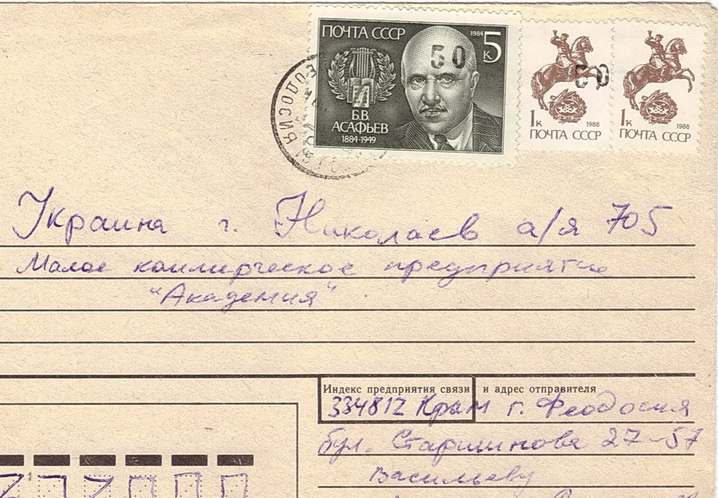 ПОЧТА СССР 1984 5 к
50
Б.В.
АСАФЬЕВ
1884-1949
50
1к 1988
ПОЧТА СССР
1к 1988
ПОЧТА СССР
Украина г. Николаев а/я 705
Малое коммерческое предприятие
"Академия"
Индекс предприятия связи и адрес отправителя
334812 Крым г. Феодосия
бул. Старшинова 27-57
Васильеву